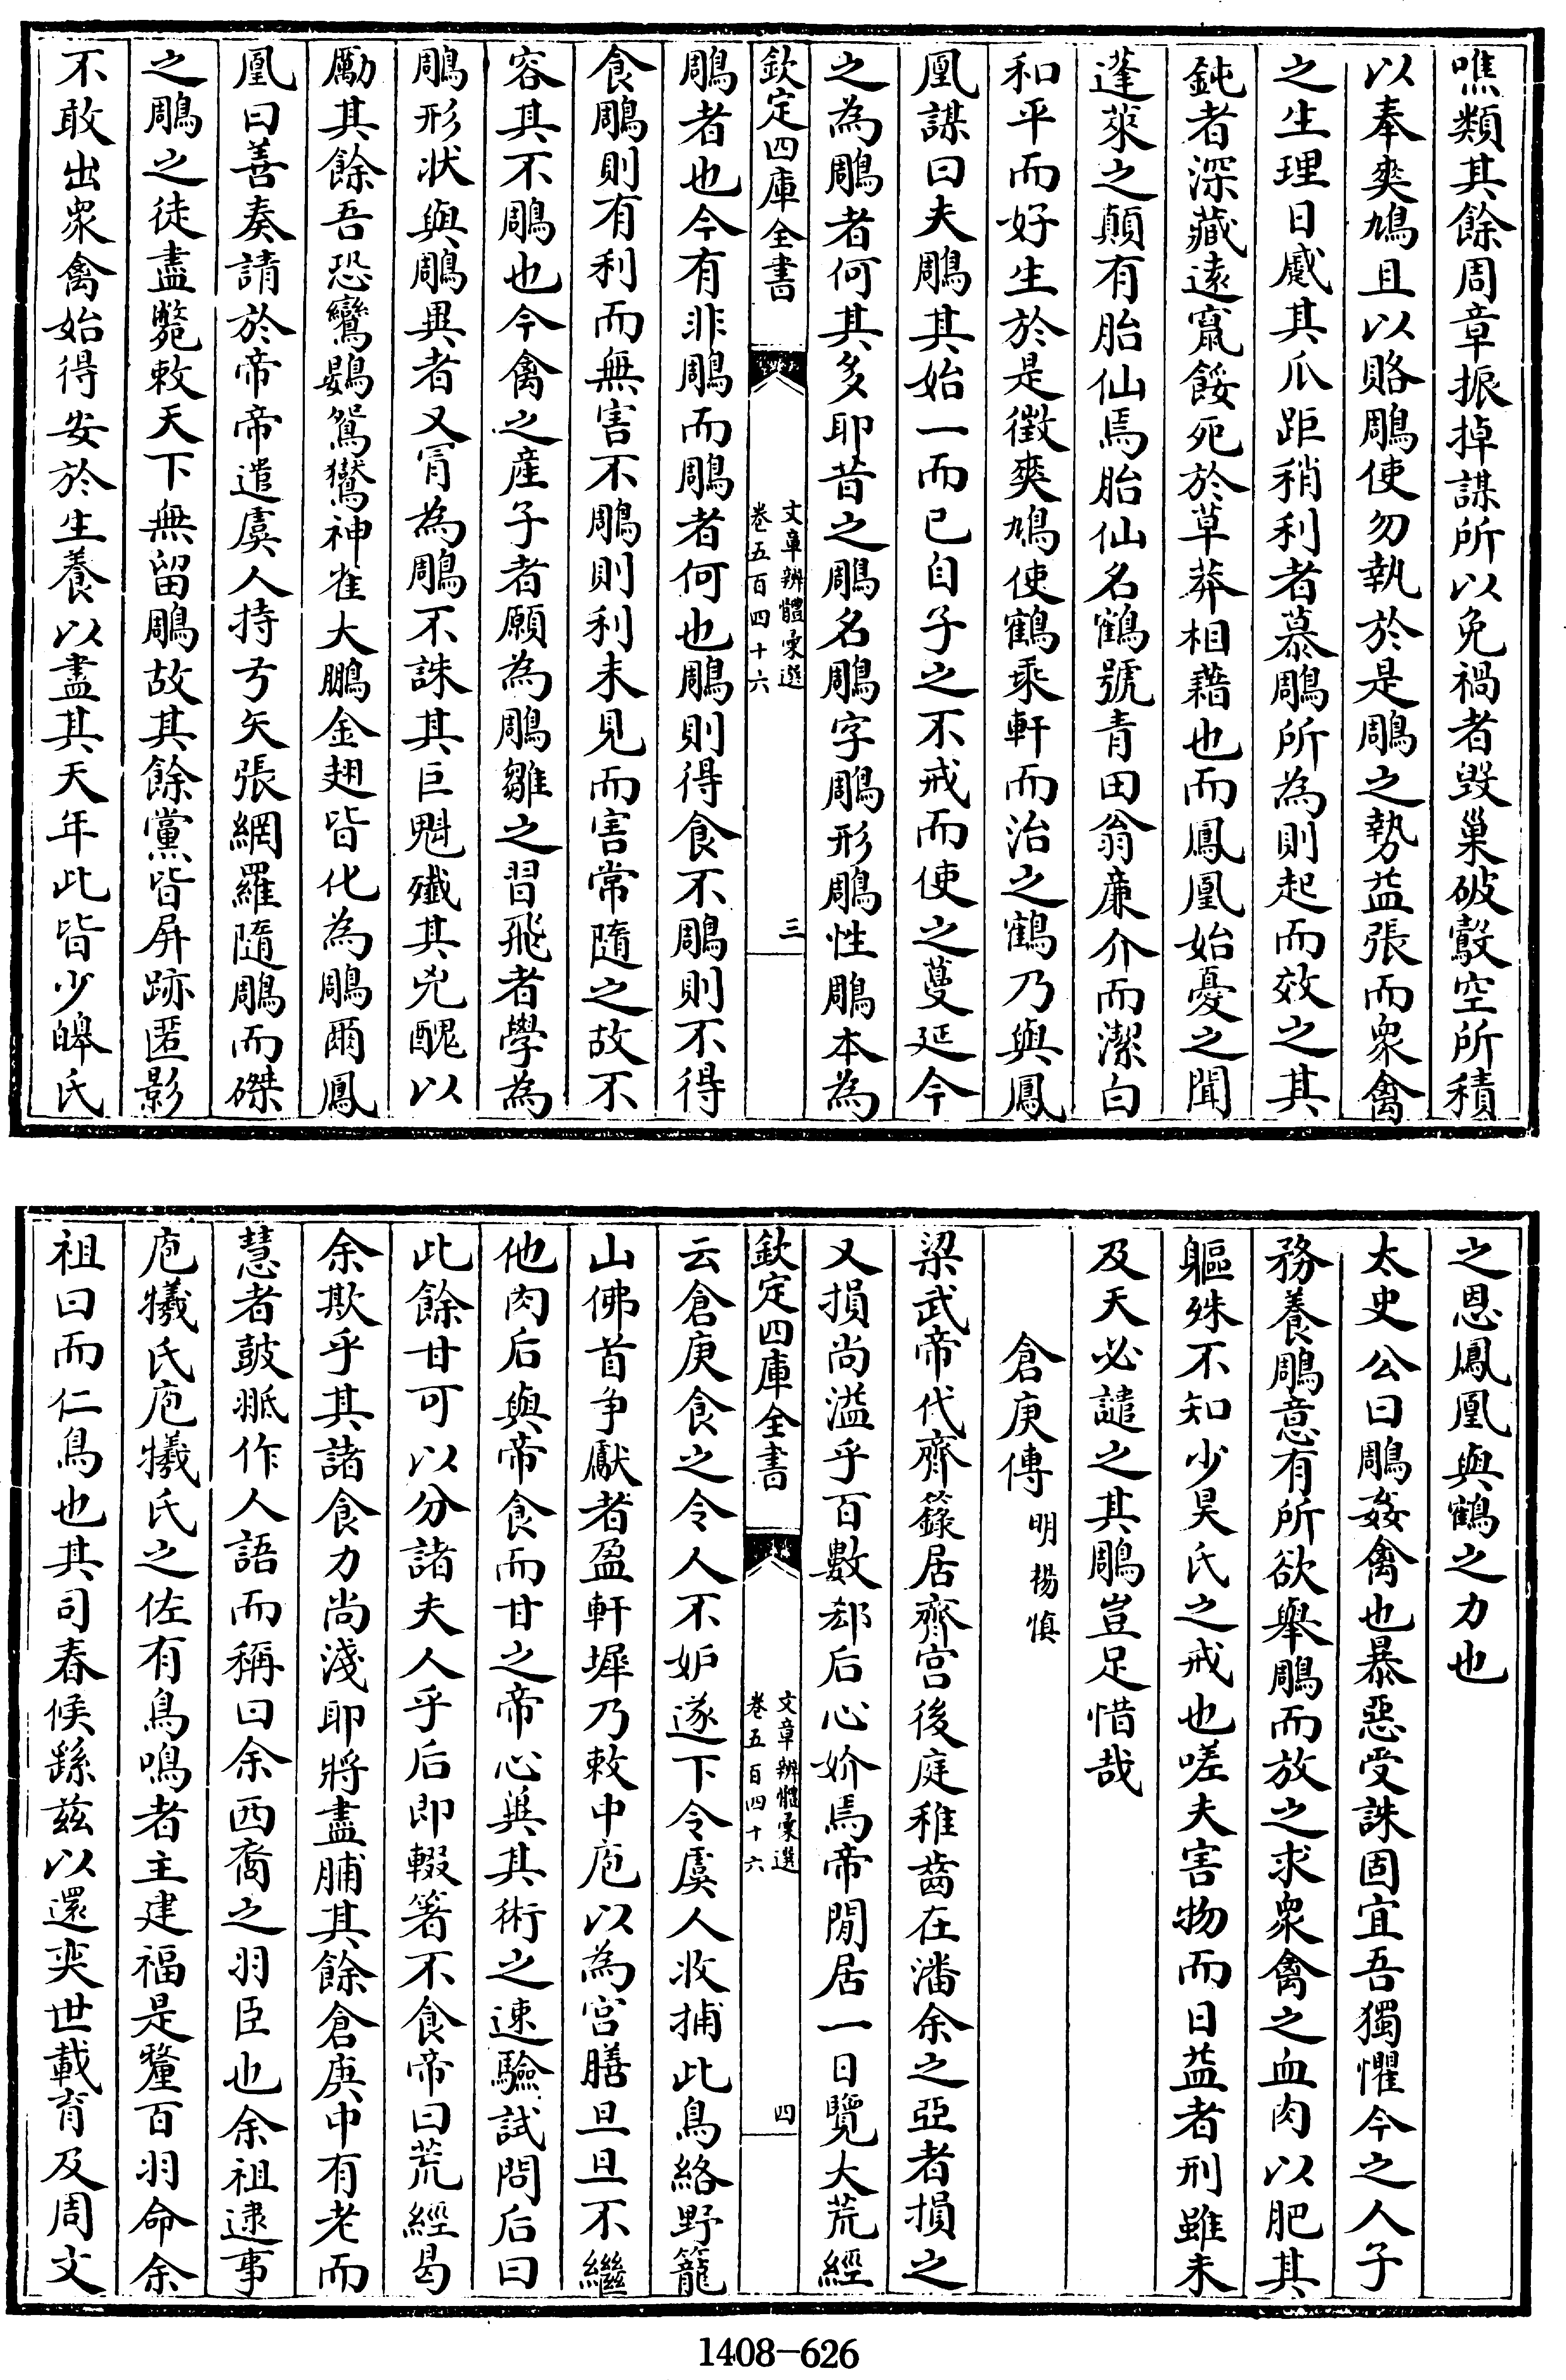 噍類其餘周章振掉謀所以免禍者毁巢破鷇空所積
以奉爽鳩且以賂鵰使勿執於是鵰之勢益張而衆禽
之生理日蹙其爪距稍利者慕鵰所為則起而效之其
鈍者深藏遠竄餒死於草莽相藉也而鳳凰始憂之聞
蓬萊之顛有胎仙焉胎仙名鶴號青田翁亷介而潔白
和平而好生於是徵爽鳩使鶴乘軒而治之鶴乃與鳳
凰謀曰夫鵰其始一而已自子之不戒而使之蔓延今
之為鵰者何其多耶昔之鵰名鵰字鵰形鵰性鵰本為
欽定四庫全書
文章辨體彙選
卷五百四十六
三
鵰者也今有非鵰而鵰者何也鵰則得食不鵰則不得
食鵰則有利而無害不鵰則利未見而害常隨之故不
容其不鵰也今禽之産子者願為鵰雛之習飛者學為
鵰形状與鵰異者又冐為鵰不誅其巨魁殱其兇醜以
勵其餘吾恐鸞鶠鴛鸑神雀大鵬金翅皆化為鵰爾鳳
凰曰善奏請於帝帝遣虞人持弓矢張網羅隨鵰而磔
之鵰之徒盡斃敕天下無留鵰故其餘黨皆屏跡匿影
不敢出衆禽始得安於生養以盡其天年此皆少皞氏
之恩鳳凰與鶴之力也
太史公曰鵰姦禽也暴惡受誅固宜吾獨懼今之人子
務養鵰意有所欲舉鵰而放之求衆禽之血肉以肥其
軀殊不知少昊氏之戒也嗟夫害物而日益者刑雖未
及天必譴之其鵰豈足惜哉
倉庚傳 明楊慎
梁武帝代齊籙居齊宫後庭稚齒在潘余之亞者損之
又損尚溢乎百數郄后心妎焉帝閒居一日覽大荒經
欽定四庫全書
文章辨體彙選
卷五百四十六
四
云倉庚食之令人不妒遂下令虞人收捕此鳥絡野籠
山佛首争獻者盈軒墀乃敕中庖以為宫膳旦旦不繼
他肉后與帝食而甘之帝心巽其術之速驗試問后曰
此餘甘可以分諸夫人乎后即輟箸不食帝曰荒經曷
余欺乎其諸食力尚淺耶將盡脯其餘倉庚中有老而
慧者鼓䏡作人語而稱曰余西裔之羽臣也余祖逮事
庖犧氏庖犧氏之佐有鳥鳴者主建福是釐百羽命余
祖曰而仁鳥也其司春候繇兹以還奕世載育及周文
1408-626